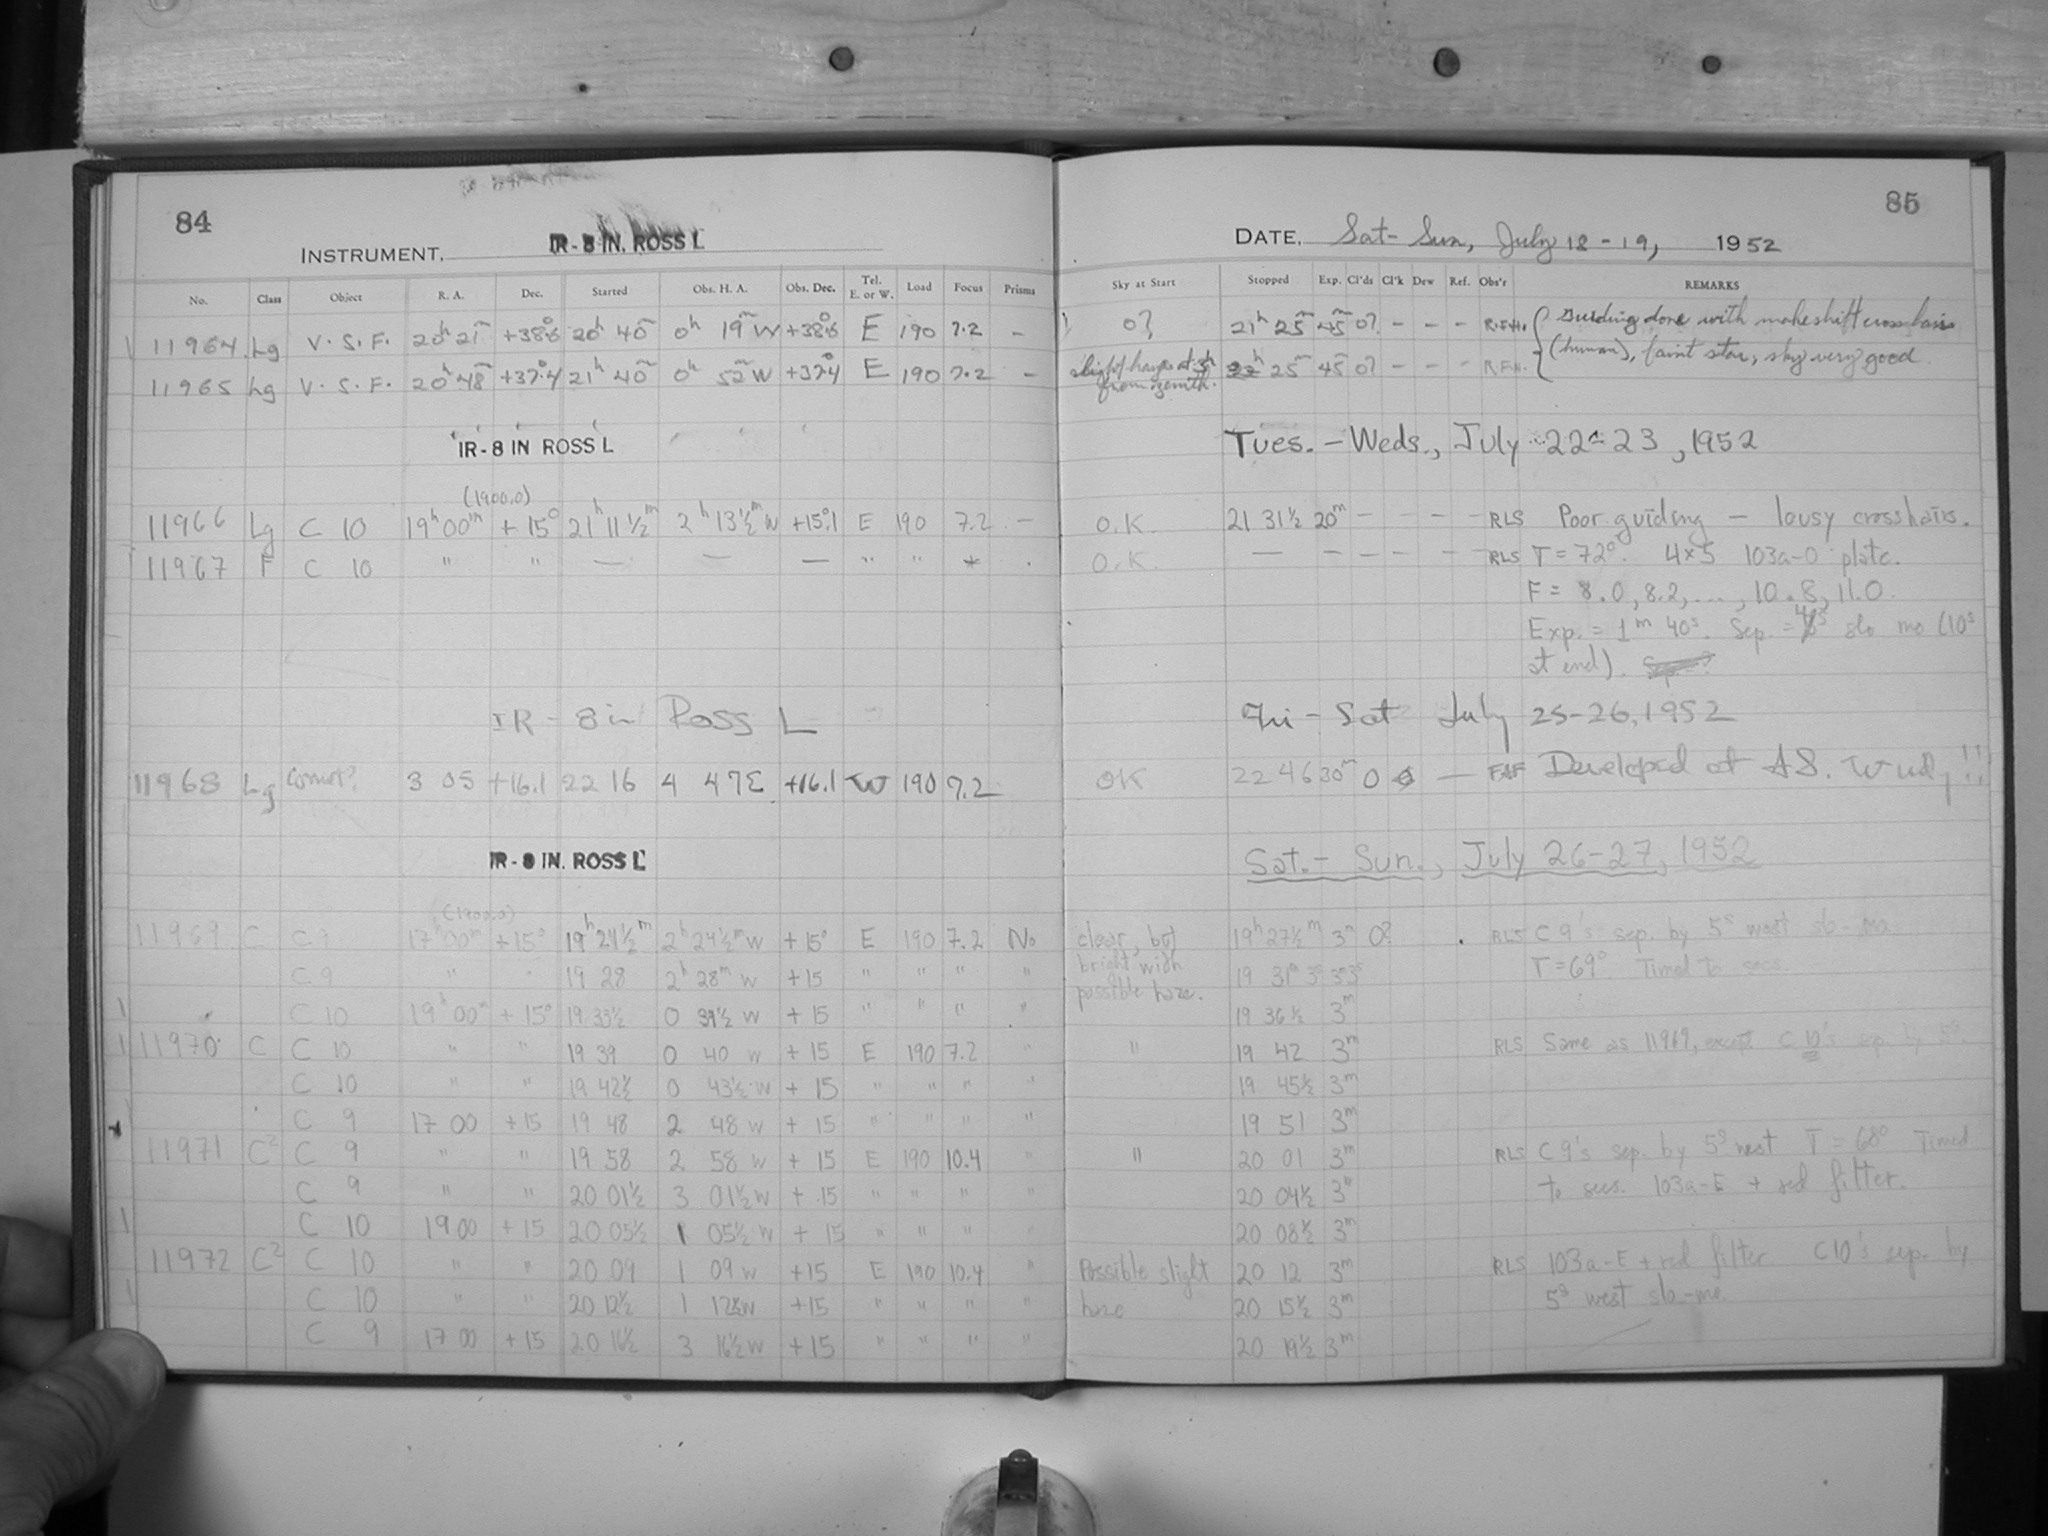 84
INSTRUMENT, IR-8 IN. ROSS L
No. Class Object R. A. Dec. Started Obs. H. A. Obs. Dec. Tel. E. or W. Load Focus Prisms
11964 Lg V. S. F. 20h 21m +38°.6 20h 40m 0h 19m W +38°.6 E 190 7.2 -
11965 Lg V. S. F. 20h 48m +37°.4 21h 40m 0h 52m W +37°.4 E 190 7.2 -
IR-8 IN ROSS L
(1900.0)
11966 Lg C 10 19h 00m +15° 21h 11½m 2h 13½m W +15°.1 E 190 7.2 -
11967 F C 10 " " — — — " " *
IR - 8 in Ross L
11968 Lg Comet? 3 05 +16.1 22 16 4 47E +16.1 W 190 7.2
IR-8 IN. ROSS L
(1900.0)
11969 C C 9 17h 00m +15° 19h 24½m 2h 24½m W +15° E 190 7.2 No
C 9 " 19 28 2h 28m W +15 " " " "
C 10 19h 00m +15° 19 33½ 0 39½ W +15 " " " "
11970 C C 10 " " 19 39 0 40 W +15 E 190 7.2 "
C 10 " " 19 42½ 0 43½ W +15 " " " "
C 9 17 00 +15 19 48 2 48 W +15 " " " "
11971 C2 C 9 " " 19 58 2 58 W +15 E 190 10.4 "
C 9 " " 20 01½ 3 01½ W +15 " " " "
C 10 19 00 +15 20 05½ 1 05½ W +15 " " " "
11972 C2 C 10 " " 20 09 1 09 W +15 E 190 10.4 "
C 10 " " 20 12½ 1 12½ W +15 " " " "
C 9 17 00 +15 20 16½ 3 16½ W +15 " " " "
85
DATE, Sat- Sun, July 18-19, 1952
Sky at Start Stopped Exp. Cl'ds Cl'k Dew Ref. Obs'r REMARKS
0? 21h 25m 45m 0? - - - R.F.H. Guiding done with makeshift cross hairs
slight haze at
from zenith. 22h 25m 45m 0? - - - R.F.H. (human), faint star, sky very good
Tues. - Weds., July 22-23, 1952
O.K. 21 31½ 20m - - - - RLS Poor guiding - lousy crosshairs.
O.K. — - - - - - RLS T = 72°. 4x5 103a-O plate.
F = 8.0, 8.2, ..., 10.8, 11.0
Exp. = 1m 40s. Sep. = slo mo (10s
at end).
Fri - Sat July 25-26, 1952
OK 22 46 30m 0 — FAF Developed at
Sat. - Sun., July 26-27, 1952
clear, but
bright with
possible haze.
19h 27½m 3m 0? RLS C 9's sep. by 5s west slo-mo
19 31 T = 69° Timed to secs
19 36½ 3m
" 19 42 3m RLS Same as 11969, except C 10's sep. by 5s.
19 45½ 3m
19 51 3m
" 20 01 3m RLS C 9's sep. by 5s west T = 68° Timed
20 04½ 3m to secs. 103a-E + red filter.
20 08½ 3m
Possible slight 20 12 3m RLS 103a-E + red filter C10's sep. by
haze 20 15½ 3m 5s west slo-mo.
20 19½ 3m